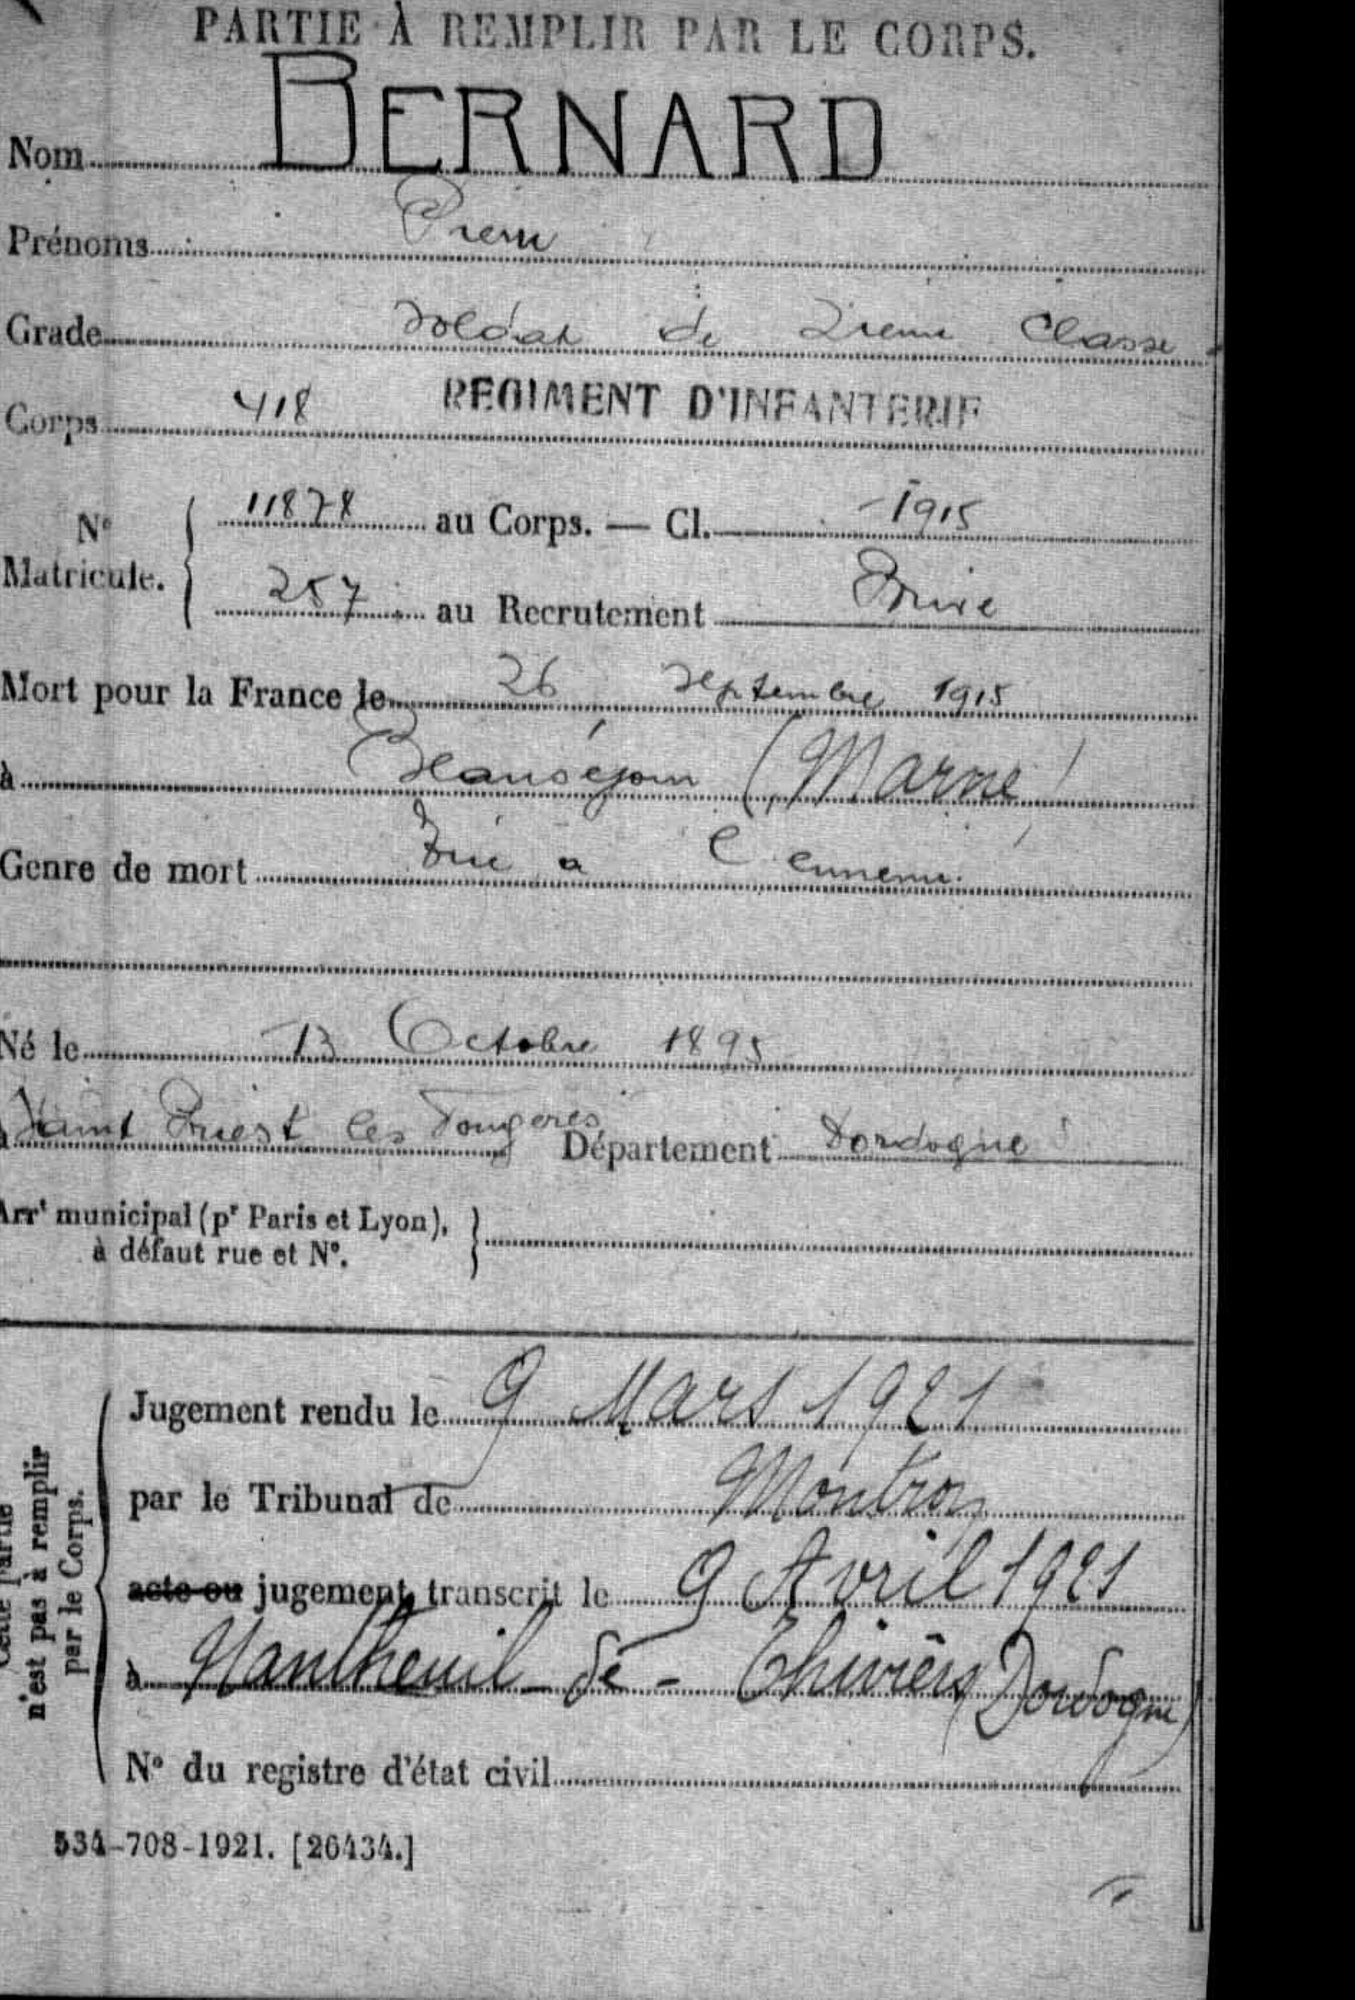 PARTIE À REMPLIR PAR LE CORPS.
Nom BERNARD
Prénoms Pierre
Grade Soldat de 2ieme Classe
Corps 418 REGIMENT D'INFANTERIE
N° Matricule. 11878 au Corps. — Cl. 1915
257 au Recrutement Brive
Mort pour la France le 26 Septembre 1915
à Beauséjour (Marne)
Genre de mort Tué a l'ennemi.
Né le 13 Octobre 1895
à Saint Priest les Fougeres Département Dordogne
Arrt municipal (pr Paris et Lyon), à défaut rue et N°.
Cette partie n'est pas à remplir par le Corps.
Jugement rendu le 9 Mars 1921
par le Tribunal de
acte ou jugement transcrit le 9 Avril 1921
à Nantheuil-de-Thiviers (Dordogne)
N° du registre d'état civil
534-708-1921. [26434.]